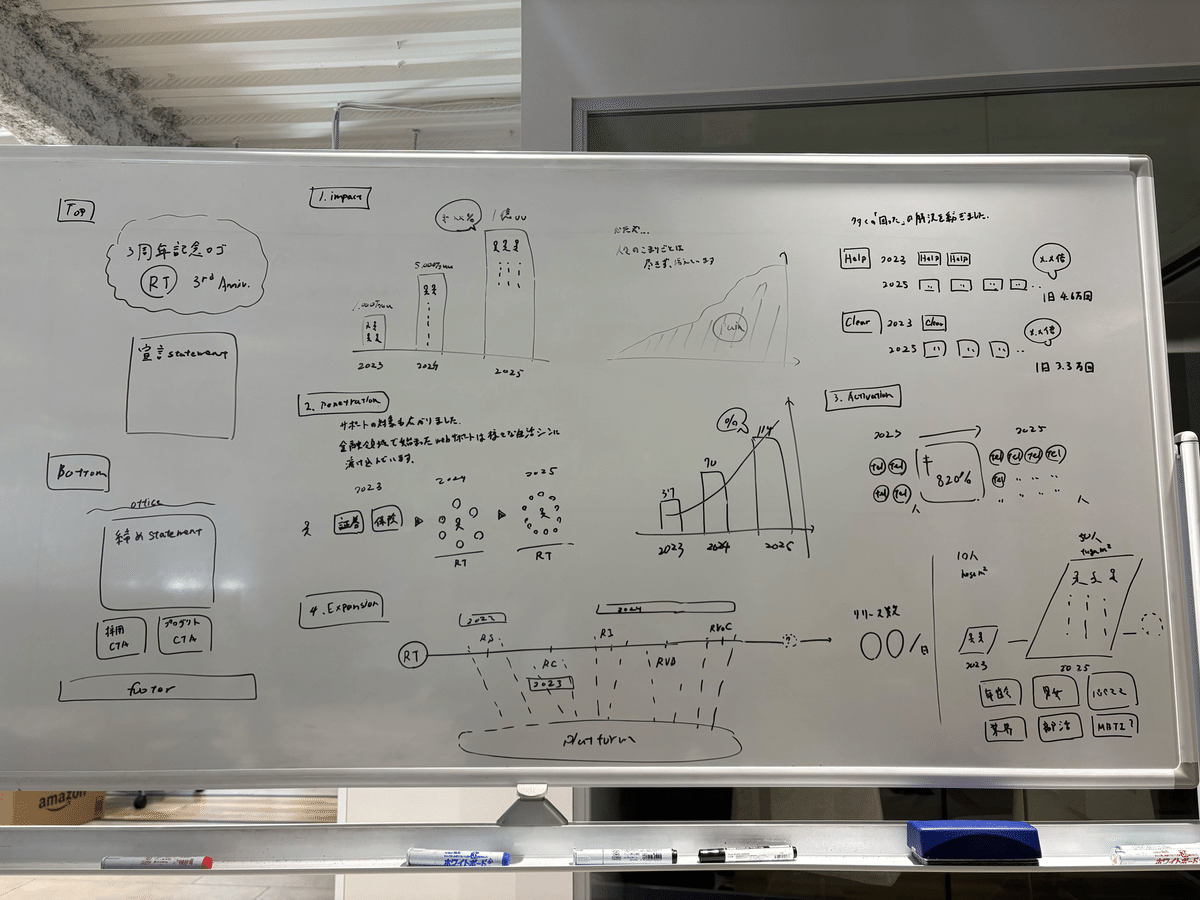 Top
3周年記念ロゴ
RT 3rd Anniv.
宣言 statement
Bottom
office
締め statement
採用 CTA
プロダクト CTA
footer
1. impact
1億uu
2023
2024
2025
2. Penetration
サポートの対象も広がりました.
金融領域で始まったwebサポートは様々な生活シーンに
溶け込んでいます.
2023
2024
2025
証券
保険
RT
RT
人々のこまりごとは
尽きず、増えています
Pain
%
37
70
114
2023
2024
2025
多くの「困った」の解決を紡ぎました.
Help 2023 Help Help
x.x倍
2025
1日 4.6万回
Clear 2023 Clear
x.x倍
2025
1日 3.3万回
3. Activation
2023
2025
Tel Tel
Tel Tel
820%
Tel Tel Tel Tel
Tel
4. Expansion
2022
2024
RT
RS
RC
2023
RI
RVD
RVoC
?
Platform
リリース数
00/日
10人
hoge m²
50人
hoge m²
2023
2025
年齢
男女
業界
部活
MBTI?
amazon
ホワイトボード
ホワイトボード